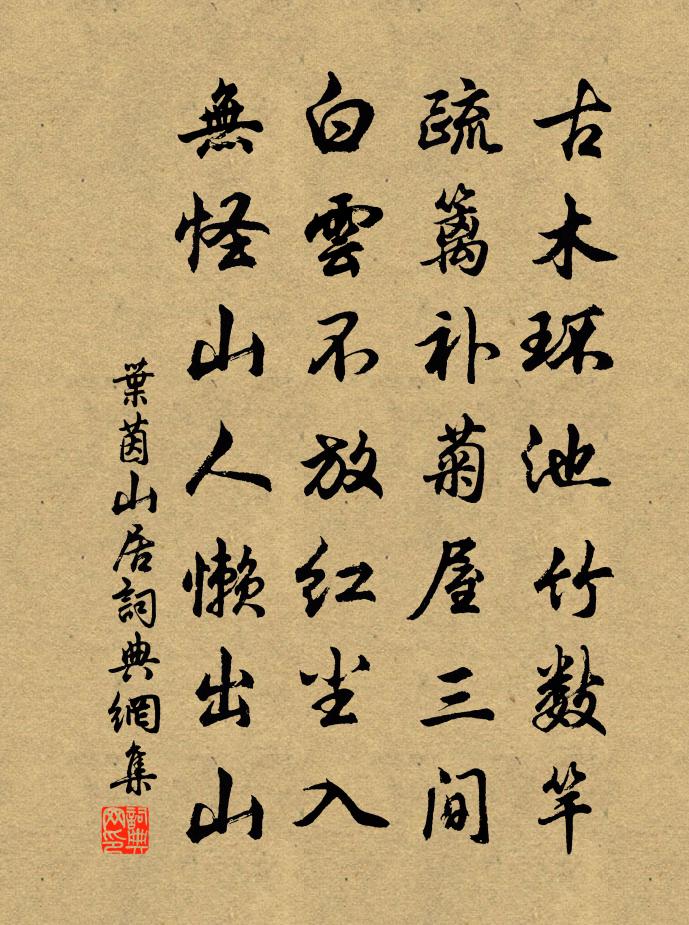 古木环池竹数竿
疏篱补菊屋三间
白雲不放红尘入
無怪山人懒出山
葉茵山居詞典網集
詞典网印